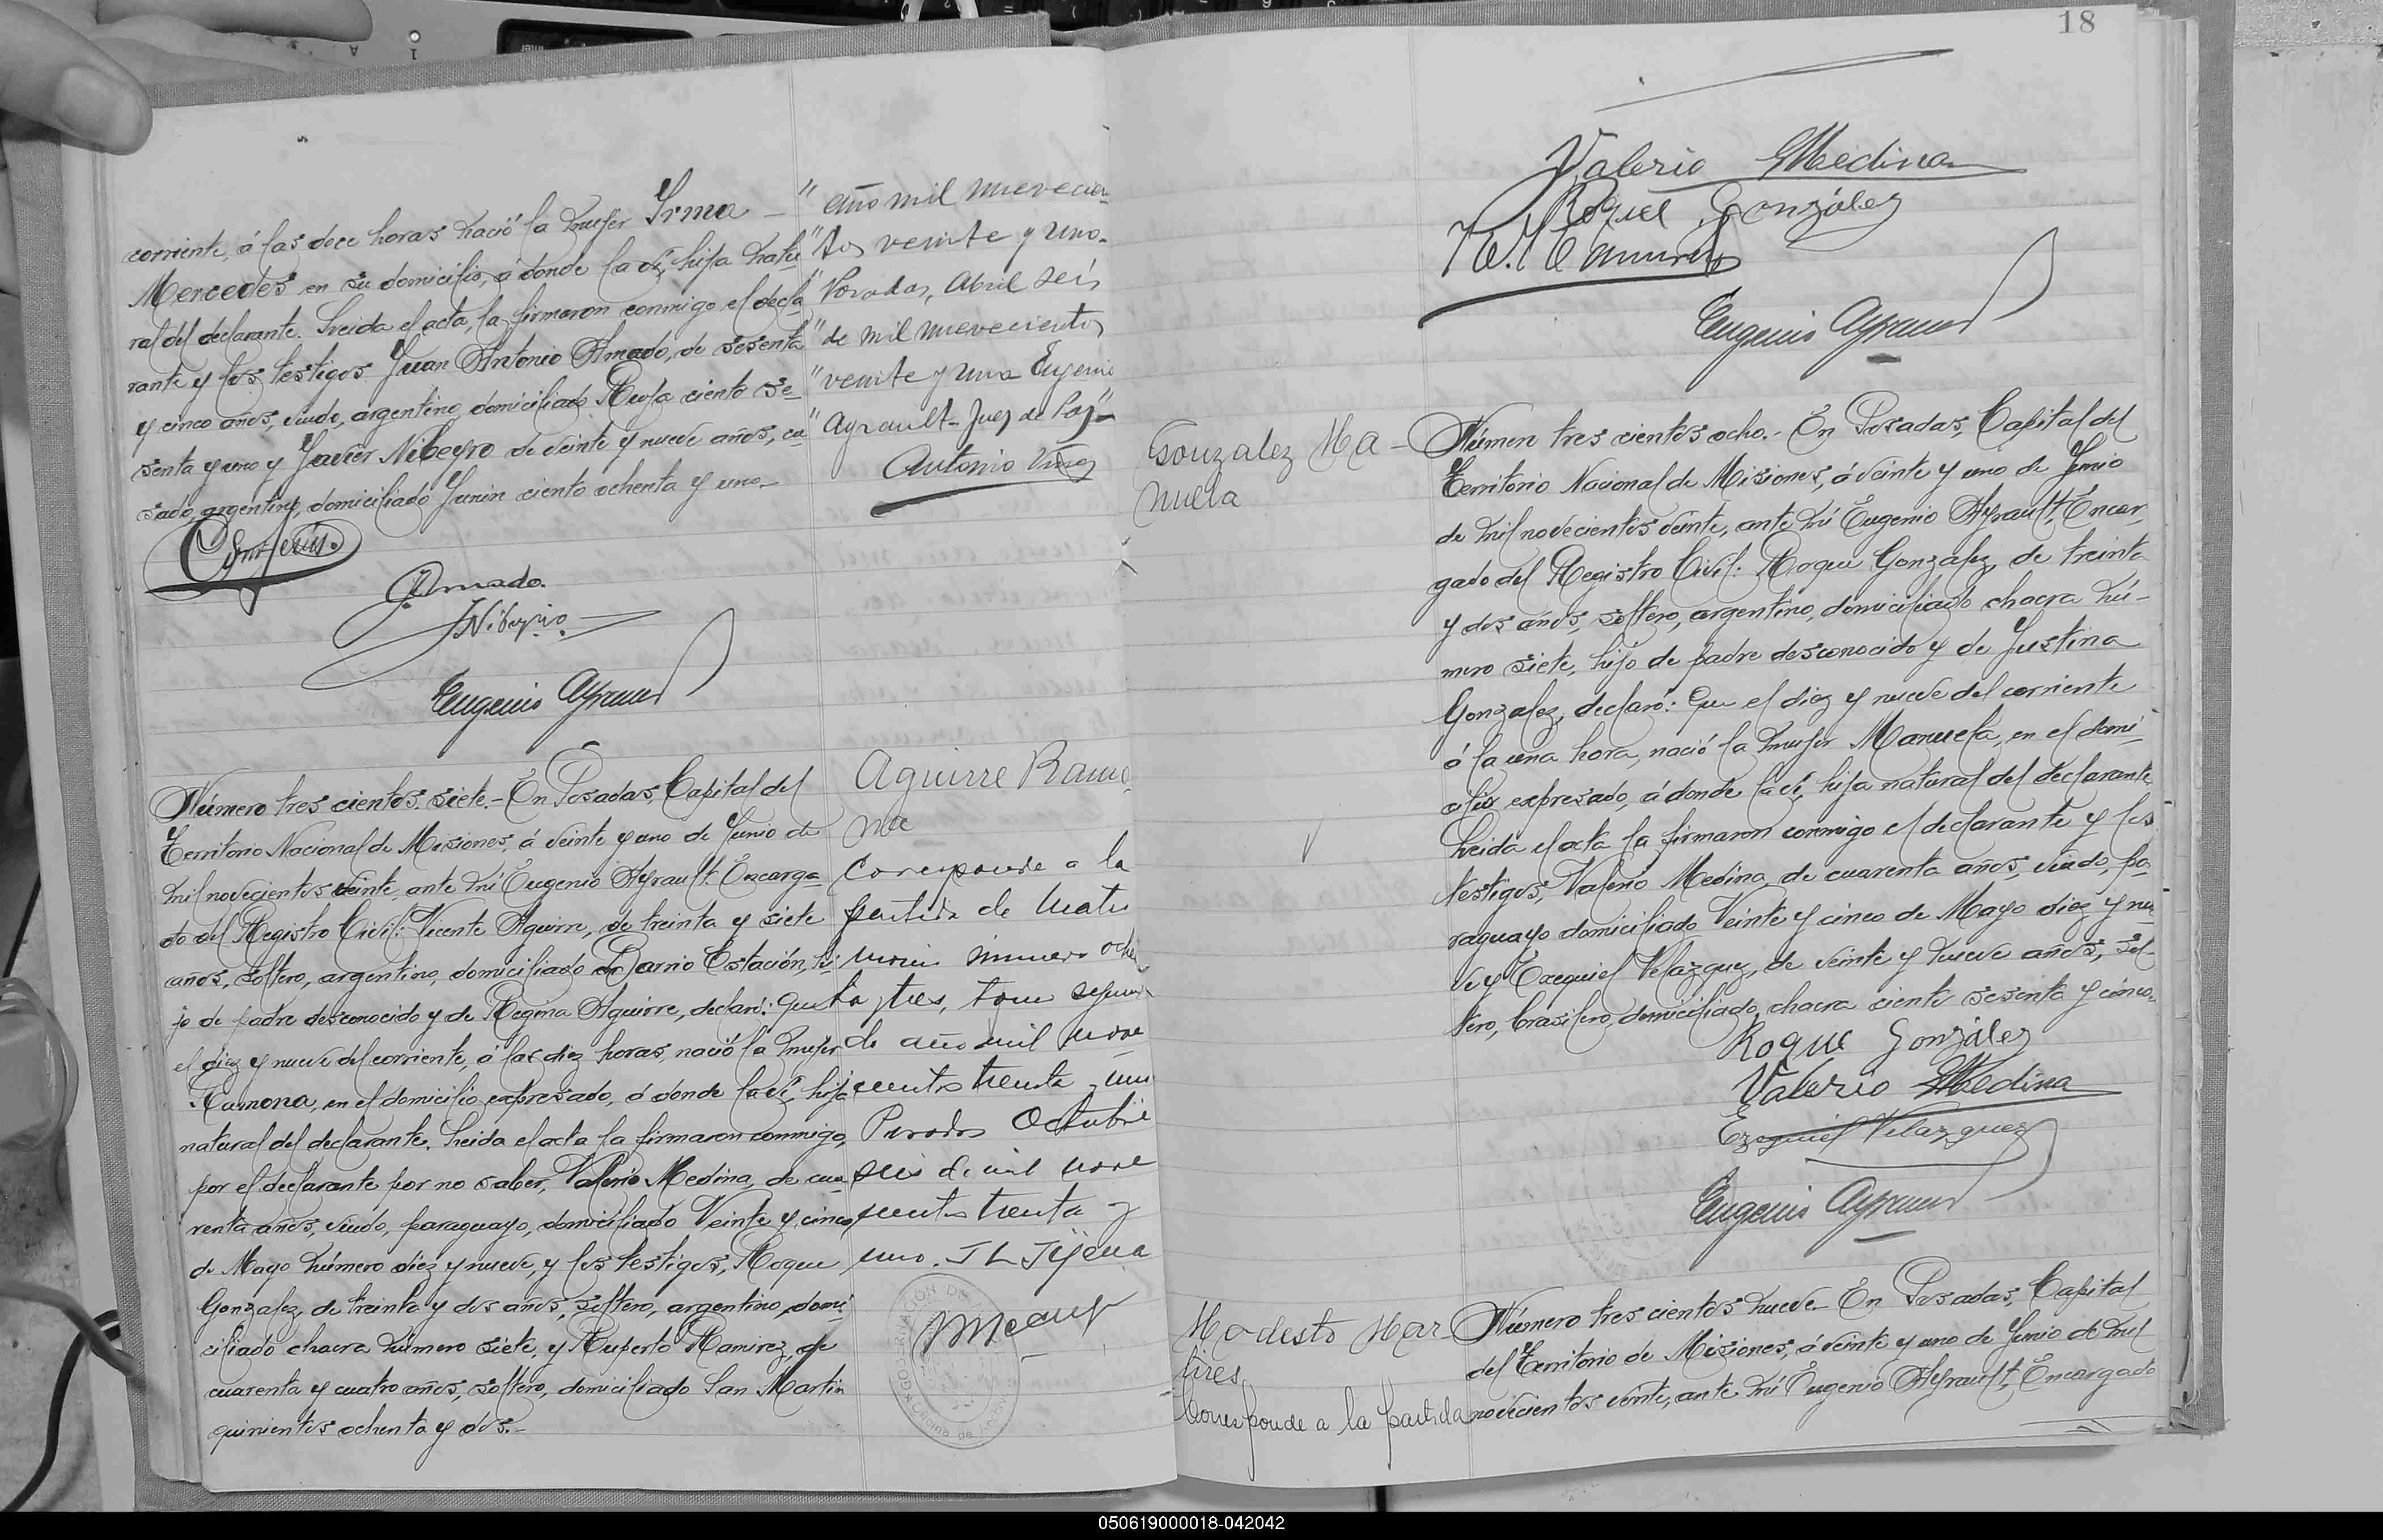 corriente, á las doce horas nació la mujer Irma
Mercedes en su domicilio, á donde la ví, hija natu
ral del declarante. Leida el acta, la firmaron conmigo el decla
rante y los testigos Juan Antonio Amado, de sesenta
y cinco años, viudo, argentino, domiciliado Rioja ciento se
senta y uno y Javier Nibeyro de veinte y nueve años, ca
sado, argentino, domiciliado Junin ciento ochenta y uno.
JAmado.
JNibeyro.
Eugenio Ayrault
" año mil novecien
" tos veinte y uno.
" Posadas, Abril seis
" de mil novecientos
" veinte y uno Eugenio
" Ayrault- Juez de Paz"
Antonio
Número tres cientos siete.- En Posadas, Capital del
Territorio Nacional de Misiones, á veinte y uno de Junio de
mil novecientos veinte, ante mí Eugenio Ayrault Encarga
do del Registro Civil: Vicente Aguirre, de treinta y siete
años, soltero, argentino, domiciliado Barrio Estación, hi
jo de padre desconocido y de Regina Aguirre, declaró: Que
el diez y nueve del corriente, á las diez horas, nació la mujer
Ramona, en el domicilio expresado, á donde la ví, hija
natural del declarante. Leida el acta la firmaron conmigo,
por el declarante por no saber, Valerio Medina, de cua
renta años, viudo, paraguayo, domiciliado Veinte y cinco
de Mayo número diez y nueve, y los testigos, Roque
Gonzalez, de treinta y dos años, soltero, argentino, domi
ciliado chacra número siete, y Ruperto Ramirez, de
cuarenta y cuatro años, soltero, domiciliado San Martin
quinientos ochenta y dos.-
Aguirre Ramo
na
Corresponde a la
partida de matri
monio número ochen
ta y tres, tomo segun
do año mil nove
cientos treinta y uno
Posadas Octubre
seis de mil nove
cientos treinta y
uno. J L Tijena
18
Valerio Medina
Roque González
Eugenio Ayrault
Gonzalez Ma
nuela
Númen tres cientos ocho.- En Posadas, Capital del
Territorio Nacional de Misiones, á veinte y uno de Junio
de mil novecientos veinte, ante mí Eugenio Ayrault, Encar
gado del Registro Civil: Roque Gonzalez, de treinta
y dos años, soltero, argentino, domiciliado chacra nú-
mero siete, hijo de padre desconocido y de Justina
Gonzalez, declaró: Que el diez y nueve del corriente
á la una hora, nació la mujer Manuela, en el domi
cilio expresado, á donde la ví, hija natural del declarante.
Leida el acta la firmaron conmigo el declarante y los
testigos, Valerio Medina, de cuarenta años, viudo, pa
raguayo domiciliado Veinte y cinco de Mayo diez y nue
ve y Exequiel Velazquez, de veinte y nueve años, sol-
tero, brasilero, domiciliado chacra ciento sesenta y cinco.
Roque González
Valerio Medina
Ezequiel Velazquez
Eugenio Ayrault
Modesto Mar
tires
Corresponde a la partida
Número tres cientos nueve.- En Posadas, Capital
del Territorio de Misiones, á veinte y uno de Junio de mil
novecientos veinte, ante mí Eugenio Ayrault, Encargado
050619000018-042042